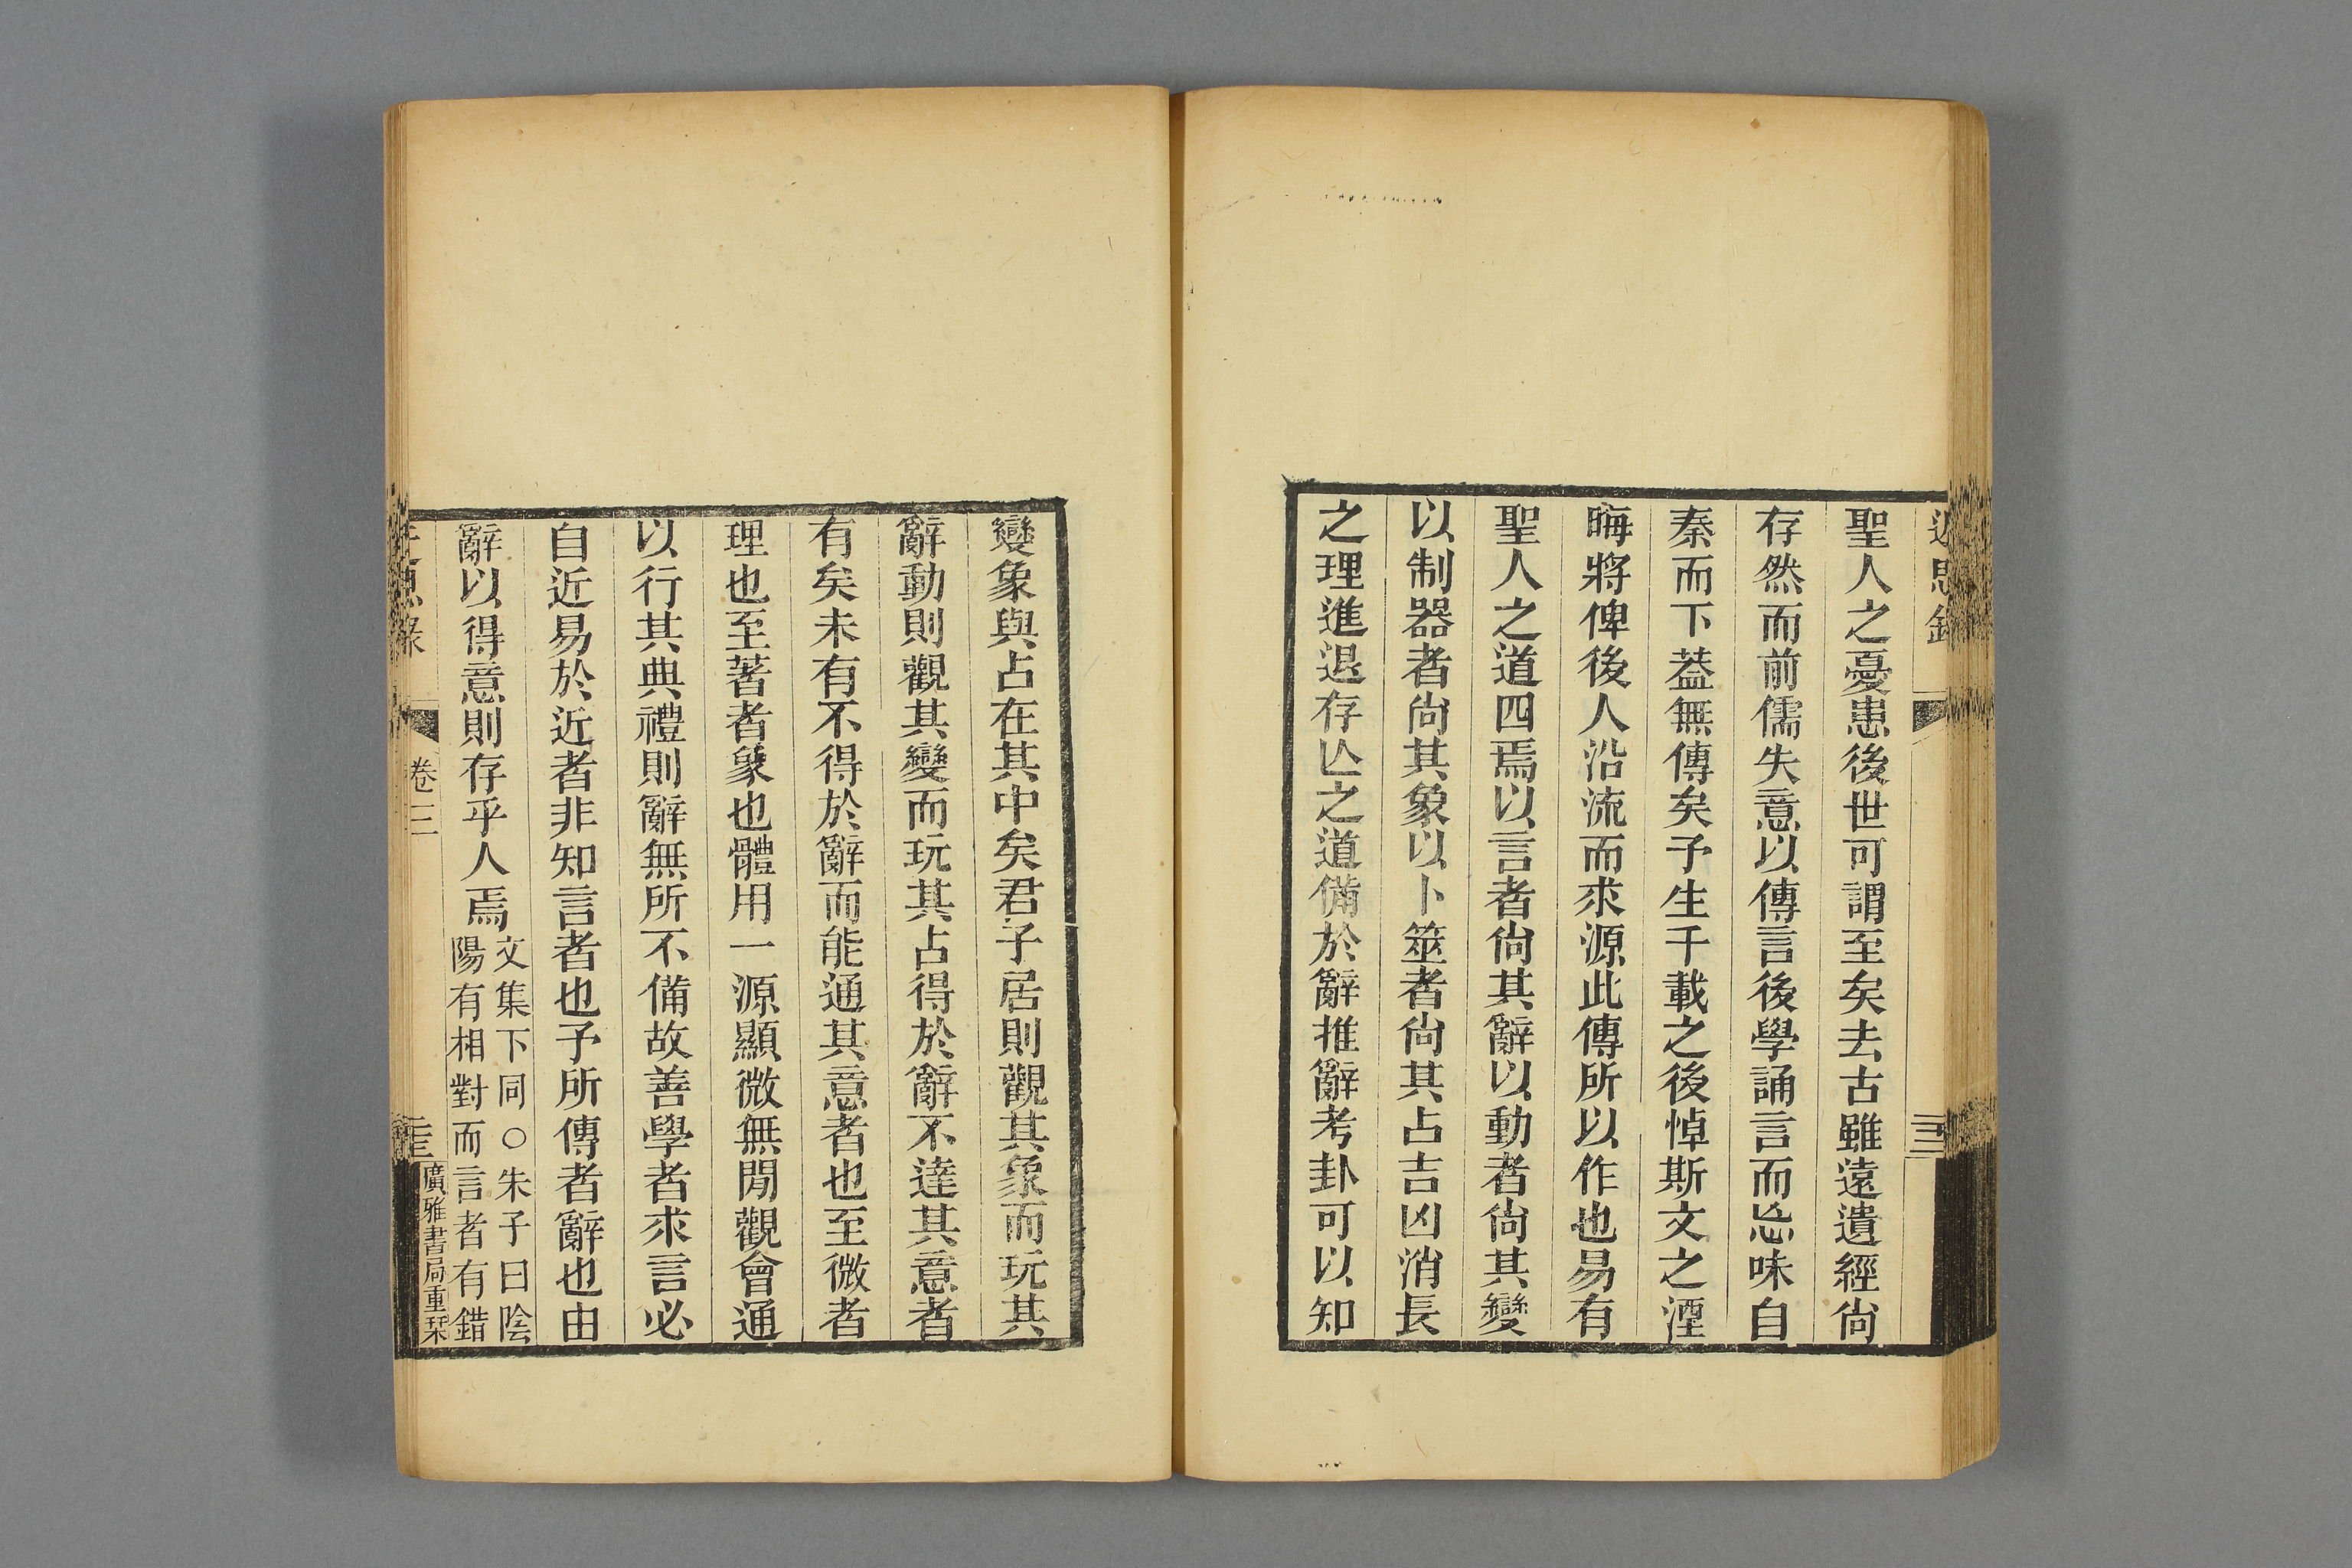 聖人之憂患後世可謂至矣去古雖遠遺經尙
存然而前儒失意以傳言後學誦言而忘味自
秦而下葢無傳矣予生千載之後悼斯文之湮
晦將俾後人沿流而求源此傳所以作也易有
聖人之道四焉以言者尙其辭以動者尙其變
以制器者尙其象以卜筮者尙其占吉凶消長
之理進退存亾之道備於辭推辭考卦可以知
變象與占在其中矣君子居則觀其象而玩其
辭動則觀其變而玩其占得於辭不達其意者
有矣未有不得於辭而能通其意者也至微者
理也至著者象也體用一源顯微無閒觀會通
以行其典禮則辭無所不備故善學者求言必
自近易於近者非知言者也予所傳者辭也由
辭以得意則存乎人焉
文集下同○朱子曰陰
陽有相對而言者有錯
近思錄
卷三
廣雅書局重栞